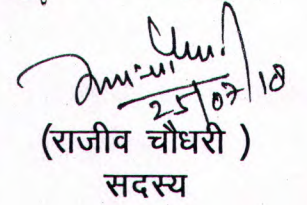 25/07/18
(राजीव चौधरी )
सदस्य